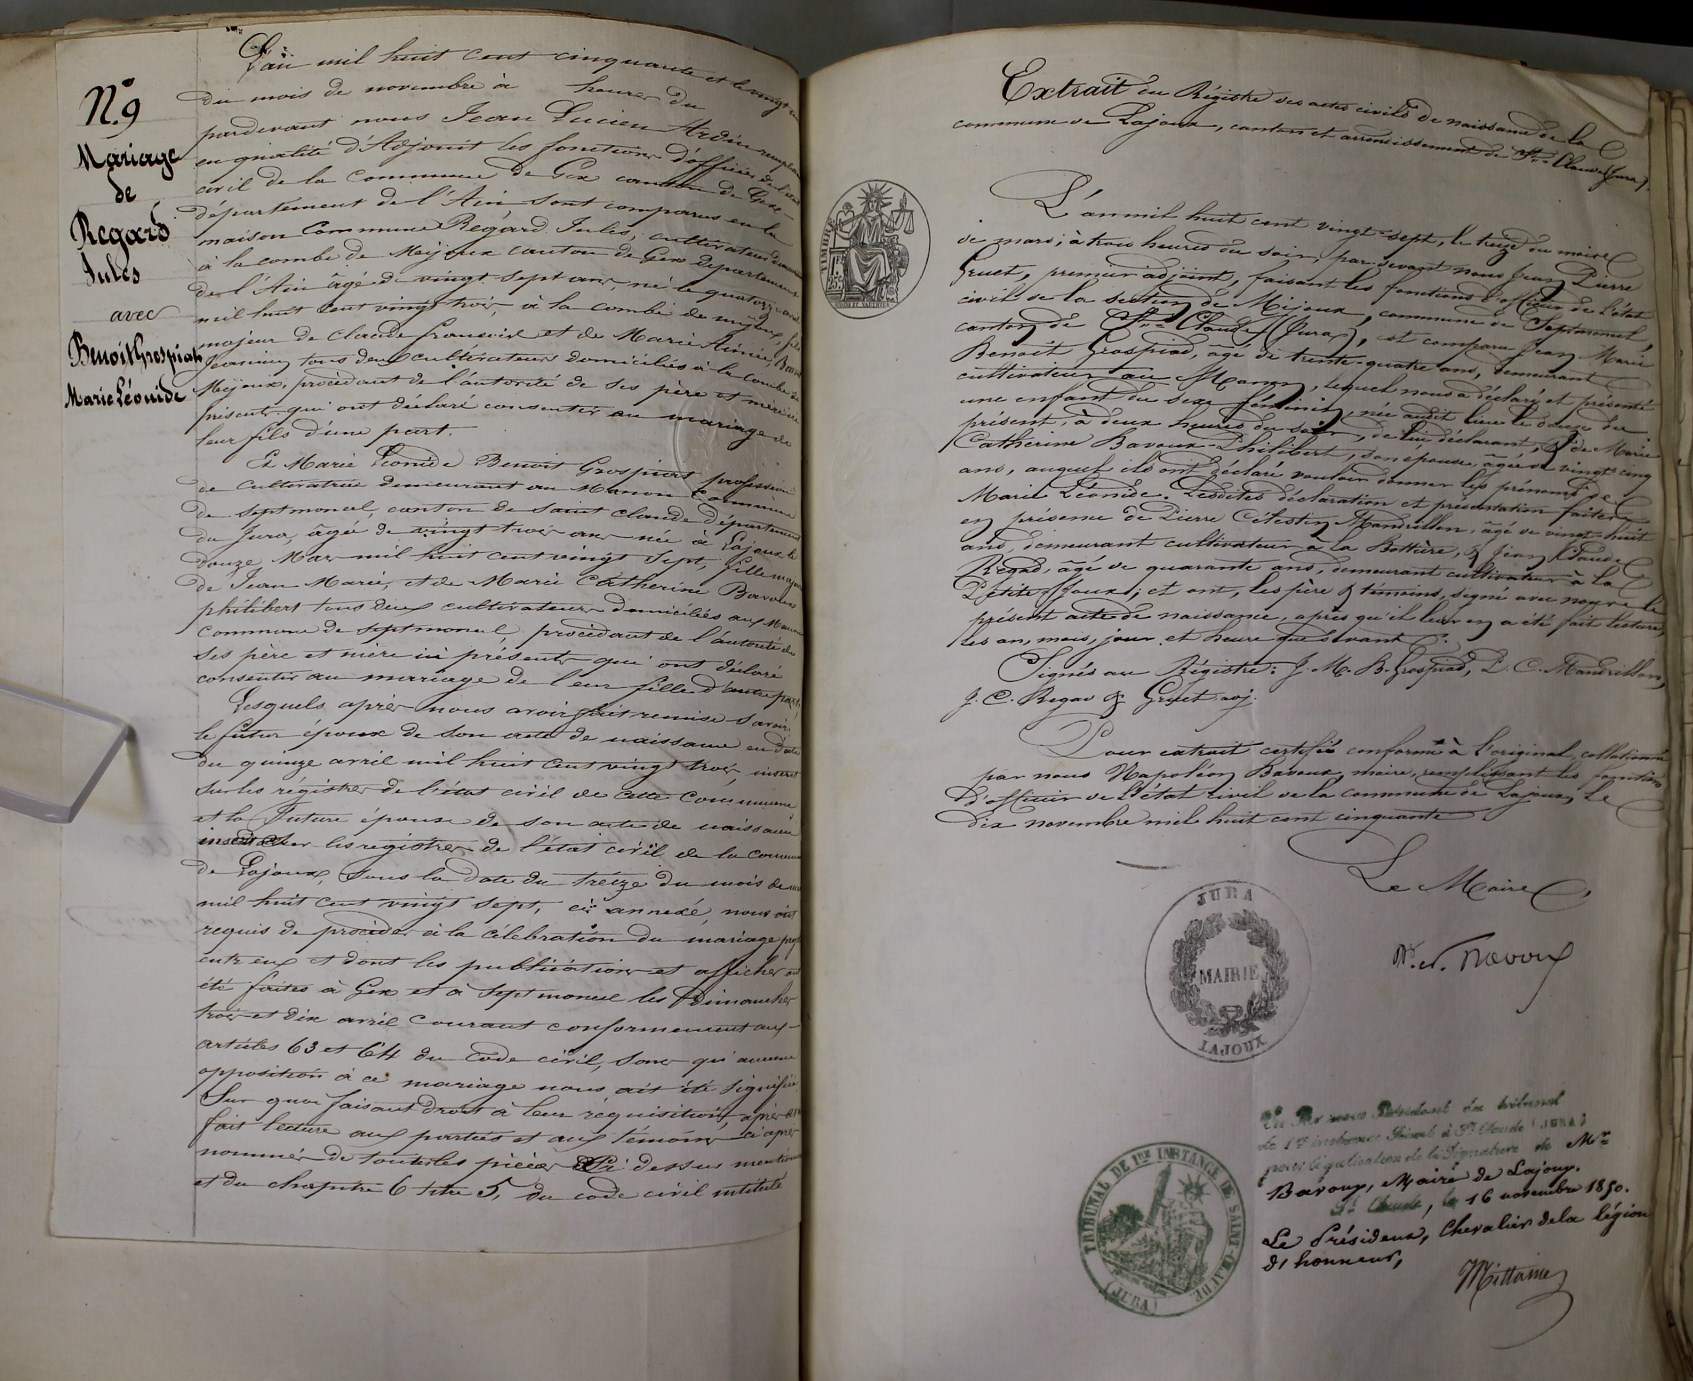 N.º 9
Mariage
de
Regard
Jules
avec
Benoit Grospiard
Marie Léonide
L'an mil huit cent cinquante et le vingt
du mois de novembre à heures du
pardevant nous Jean Lucien Ardin
en qualité d'Adjoint les fonctions d'officier de l'état
civil de la Commune de Gex canton de Gex
département de l'Ain sont comparus en la
maison Commune Regard Jules, cultivateur
à la combe de Mijoux canton de Gex département
de l'Ain âgé de vingt sept ans né le quatorze
mil huit cent vingt trois, à la combe de mijoux, fils
majeur de Claude françois et de Marie Aimée
tous deux cultivateurs domiciliés à la combe de
Mijoux, procédant de l'autorité de ses père et mère ici
présents qui ont déclaré consentir au mariage de
leur fils d'une part.
Et Marie Léonide Benoit Grospiard profession
de cultivatrice demeurant au Manon Commune
de septmoncel, canton de saint claude département
du Jura, âgée de vingt trois ans née à Lajoux le
douze Mars mil huit cent vingt sept, fille majeure
de Jean Marie, et de Marie Catherine Bavoux
philibert tous deux cultivateurs domiciliés au Manon
commune de septmoncel, procédant de l'autorité de
ses père et mère ici présents qui ont déclaré
consentir au mariage de leur fille d'autre part,
Lesquels après nous avoir fait remise savoir
le futur époux de son acte de naissance en date
du quinze avril mil huit cent vingt trois, inscrit
sur les régistres de l'état civil de cette Commune
et la future épouse de son acte de naissance
inscrit sur les registres de l'état civil de la commune
de Lajoux, sous la date du treize du mois de mars
mil huit cent vingt sept, ci annexé, nous ont
requis de procéder à la célébration du mariage
entr'eux et dont les publications et affiches ont
été faites à Gex et à septmoncel les Dimanches
trois et dix avril courant conformément aux
articles 63 et 64 du Code civil, sans qu'aucune
opposition à ce mariage nous ait été signifiée
Sur quoi faisant droit à leur réquisition, après
fait lecture aux parties et aux témoins ci après
nommés de toutes les pièces ci dessus mentionnées
et du chapitre 6 titre 5, du code civil intitulé
Extrait du Régistre des actes civils de naissance de la
commune de Lajoux, canton et arrondissement de St. Claude (Jura).
TIMBRE
L'an mil huit cent vingt-sept, le treize du mois
de mars, à trois heures du soir, par devant nous Jean Pierre
Gruet, premier adjoint, faisant les fonctions d'officier de l'état
civil de la section de Mijoux, commune de Septmoncel,
canton de St. Claude (Jura), est comparu Jean Marie
Benoît Grospiard, âgé de trente-quatre ans, demeurant
cultivateur au Manon, lequel nous a déclaré et présenté
une enfant du sexe féminin, née audit lieu le douze du
présent, à deux heures du soir, de lui déclarant, & de Marie
Catherine Bavoux-Philibert, son épouse, âgée de vingt-cinq
ans, auquel ils ont déclaré vouloir donner les prénoms de
Marie Léonide. Lesdites déclaration et présentation faites
en présence de Pierre Célestin Mandrillon, âgé de vingt-huit
ans, demeurant cultivateur à la Bottière, & Jean Claude
Regad, âgé de quarante ans, demeurant cultivateur à la
Petite Joux; et ont, les père & témoins, signé avec nous le
présent acte de naissance, après qu'il leur en a été fait lecture,
les an, mois, jour et heure que devant.
Signés au Régistre: J. M. B. Grospiad, P. C. Mandrillon,
J. C. Regad & Gruet adj.
Pour extrait certifié conforme à l'original, collationné
par nous Napoléon Bavoux, maire, remplissant les fonctions
d'officier de l'état civil de la commune de Lajoux, le
dix novembre mil huit cent cinquante
Le Maire,
JURA
MAIRIE
LAJOUX
N. Bavoux
Vu Par nous Président du tribunal
de 1re instance séant à St Claude (JURA)
pour légalisation de la Signature de Mr
Bavoux, Maire de Lajoux.
St Claude, le 16 novembre 1850.
Le Président, Chevalier de la légion
d'honneur,
TRIBUNAL DE 1RE INSTANCE DE SAINT-CLAUDE
(JURA)